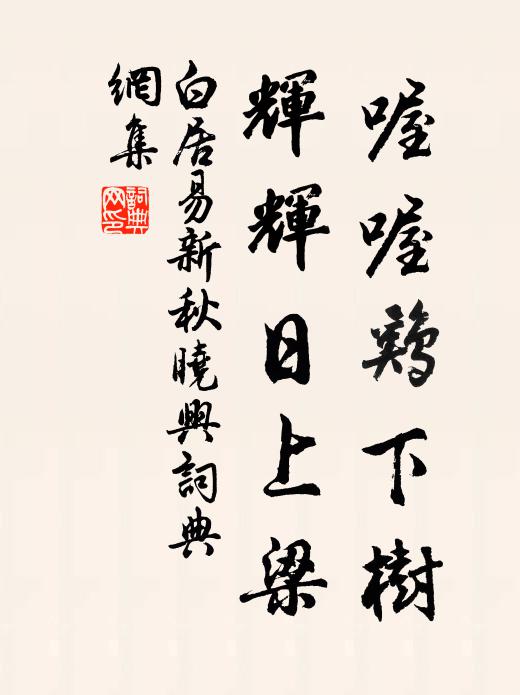 喔喔鷄下樹
輝輝日上梁
白居易新秋曉興詞典
網集
詞典
网印